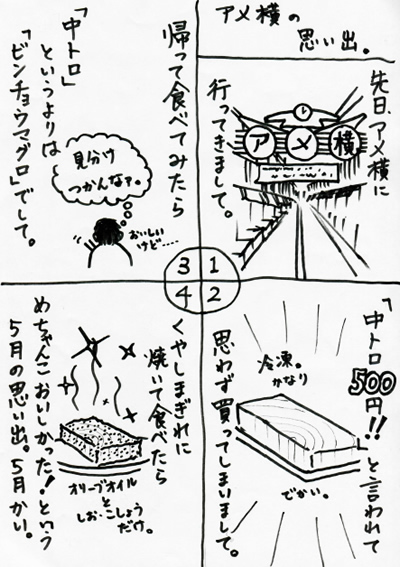 アメ横の
思い出。
先日、アメ横に
行ってきまして。
アメ横
1
2
3
4
「中トロ
500円!!
と言われて
思わず買ってしまいまして。
冷凍。
かなり
でかい。
帰って食べてみたら
「中トロ」
というよりは
「ビンチョウマグロ」でして。
見分け
つかんなァ。
おいしい
けど……
くやしまぎれに
焼いて食べたら
めちゃんこおいしかった!という
5月の思い出。5月かい。
オリーブオイル
と
しお・こしょう
だけ。